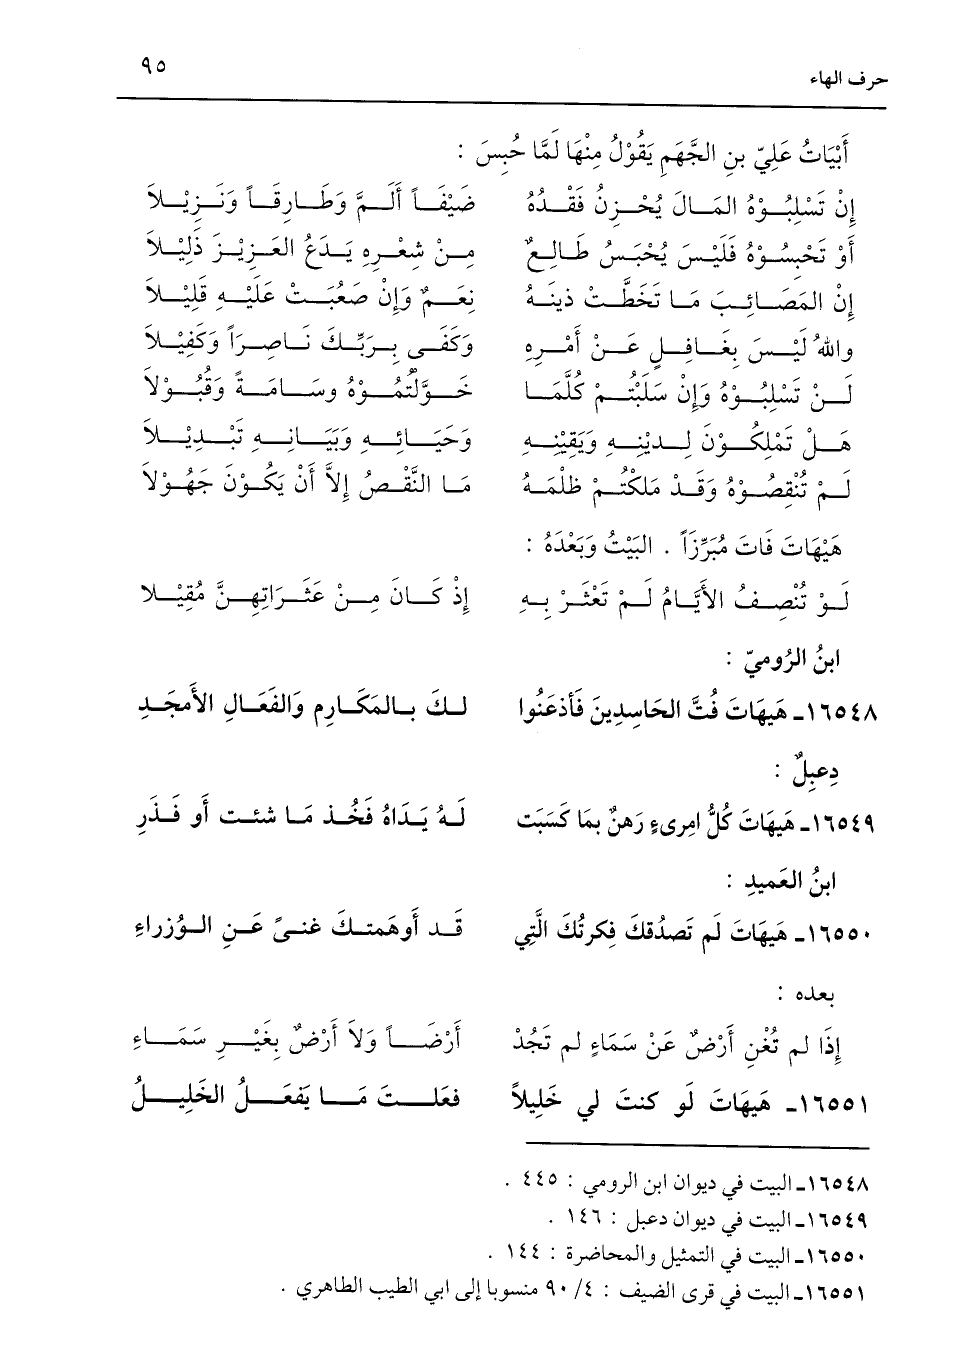 حرف الهاء ٩٥
أَبْيَاتُ عَلِيّ بنِ الجَّهمِ يَقُوْلُ مِنْهَا لَمَّا حُبِسَ :
إِن تَسْلبُوْهُ المَالَ يُحْزِنُ فَقْدُهُ ضَيْفَاً أَلَمَّ وَطَارِقَاً وَنَزِيْلاَ
أوْ تَحْبِسُوْهُ فَلَيْسَ يُحْبَسُ طَالِعٌ مِنْ شِعْرِهِ يَدَعُ العَزِيْزَ ذَلِيْلاَ
إِن المَصَائِبَ مَا تَخَطَّتْ دِينَهُ نِعَمٌ وَإِنْ صَعُبَتْ عَلَيْهِ قَلِيْلاَ
واللهُ لَيْسَ بِغَافِلٍ عَنْ أَمْرِهِ وَكَفَى بِرَبِّكَ نَاصِرَاً وَكَفِيْلاَ
لَنْ تَسْلِبُوْهُ وَإِنْ سَلَبْتُمْ كُلَّمَا خَوَّلتُمُوْهُ وسَامَةً وَقُبُوْلاَ
هَلْ تَمْلِكُوْنَ لِدِيْنِهِ وَيَقِيْنِهِ وَحَيَائِهِ وَبَيَانِهِ تَبْدِيْلاَ
لَمْ تُنْقِصُوْهُ وَقَدْ مَلَكْتُمْ ظُلمَهُ مَا النَّقْصُ إِلاَّ أَنْ يَكُوْنَ جَهُوْلاَ
هَيْهَات فَاتَ مُبَرِّزاً . البَيْتُ وَبَعْدَهُ :
لَوْ تُنْصِفُ الأَيَّامُ لَمْ تَعْثَرْ بِهِ إِذْ كَانَ مِنْ عَثَرَاتِهِنَّ مُقِيْلا
ابنُ الرُوميّ :
١٦٥٤٨ـ هَيهَاتَ فُتَّ الحَاسِدِينَ فَأذعَنُوا لكَ بالمَكَارِمِ وَالفَعَالِ الأَمجَدِ
دِعبِلٌ :
١٦٥٤٩ـ هَيهَاتَ كُلُّ امرِىءٍ رَهنٌ بمَا كَسَبَت لَهُ يَدَاهُ فَخُذ مَا شئت أَو فَذَرِ
ابنُ العَميدِ :
١٦٥٥٠ـ هَيهَاتَ لَم تَصدُقكَ فِكرتُكَ الَّتِي قَد أوهَمتكَ غنىً عَنِ الوُزراءِ
بعده :
إِذَا لم تُغْنِ أَرْضٌ عَنْ سَمَاءٍ لم تَجُدْ أَرْضَاً وَلاَ أَرْضٌ بِغَيْرِ سَمَاءِ
١٦٥٥١ـ هَيهَاتَ لَو كنتَ لي خَلِيلاً فعَلتَ مَا يَفعَلُ الخَلِيلُ
١٦٥٤٨ـ البيت في ديوان ابن الرومي : ٤٤٥ .
١٦٥٤٩ـ البيت في ديوان دعبل : ١٤٦ .
١٦٥٥٠ـ البيت في التمثيل والمحاضرة : ١٤٤ .
١٦٥٥١ـ البيت في قرى الضيف : ٤/ ٩٠ منسوبا إلى ابي الطيب الطاهري .